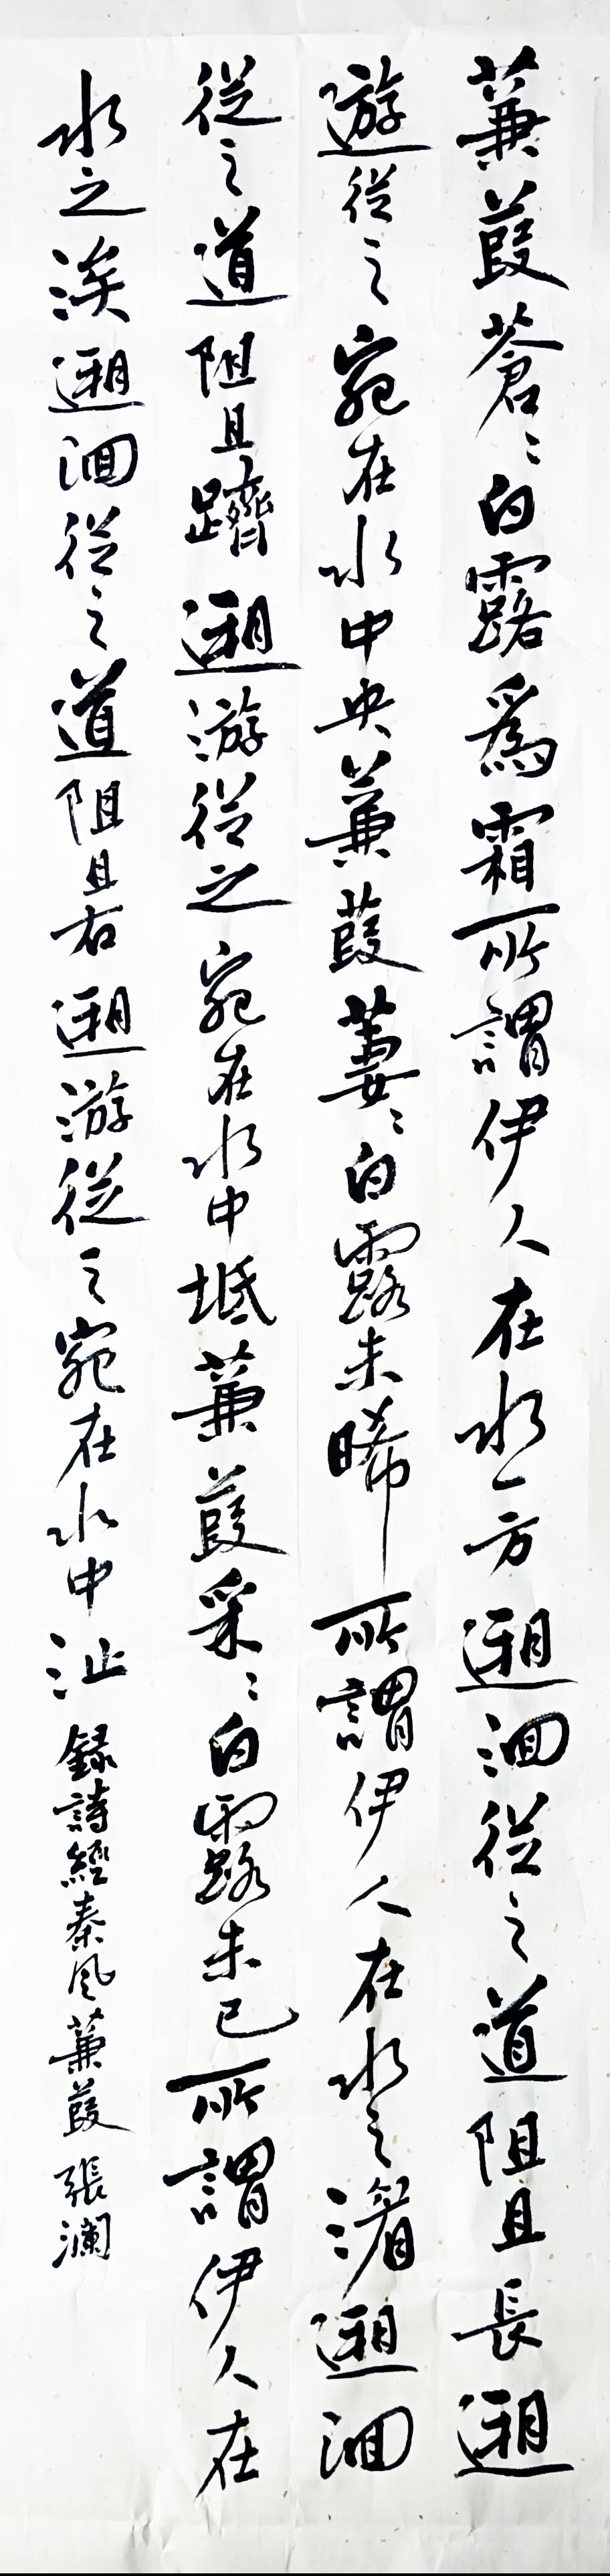 蒹葭蒼〻白露爲霜所謂伊人在水一方遡洄從之道阻且長遡
遊從之宛在水中央蒹葭萋〻白露未晞所謂伊人在水之湄遡洄
從之道阻且躋遡游從之宛在水中坻蒹葭采〻白露未已所謂伊人在
水之涘遡洄從之道阻且右遡游從之宛在水中沚 録詩經秦風蒹葭 張瀾